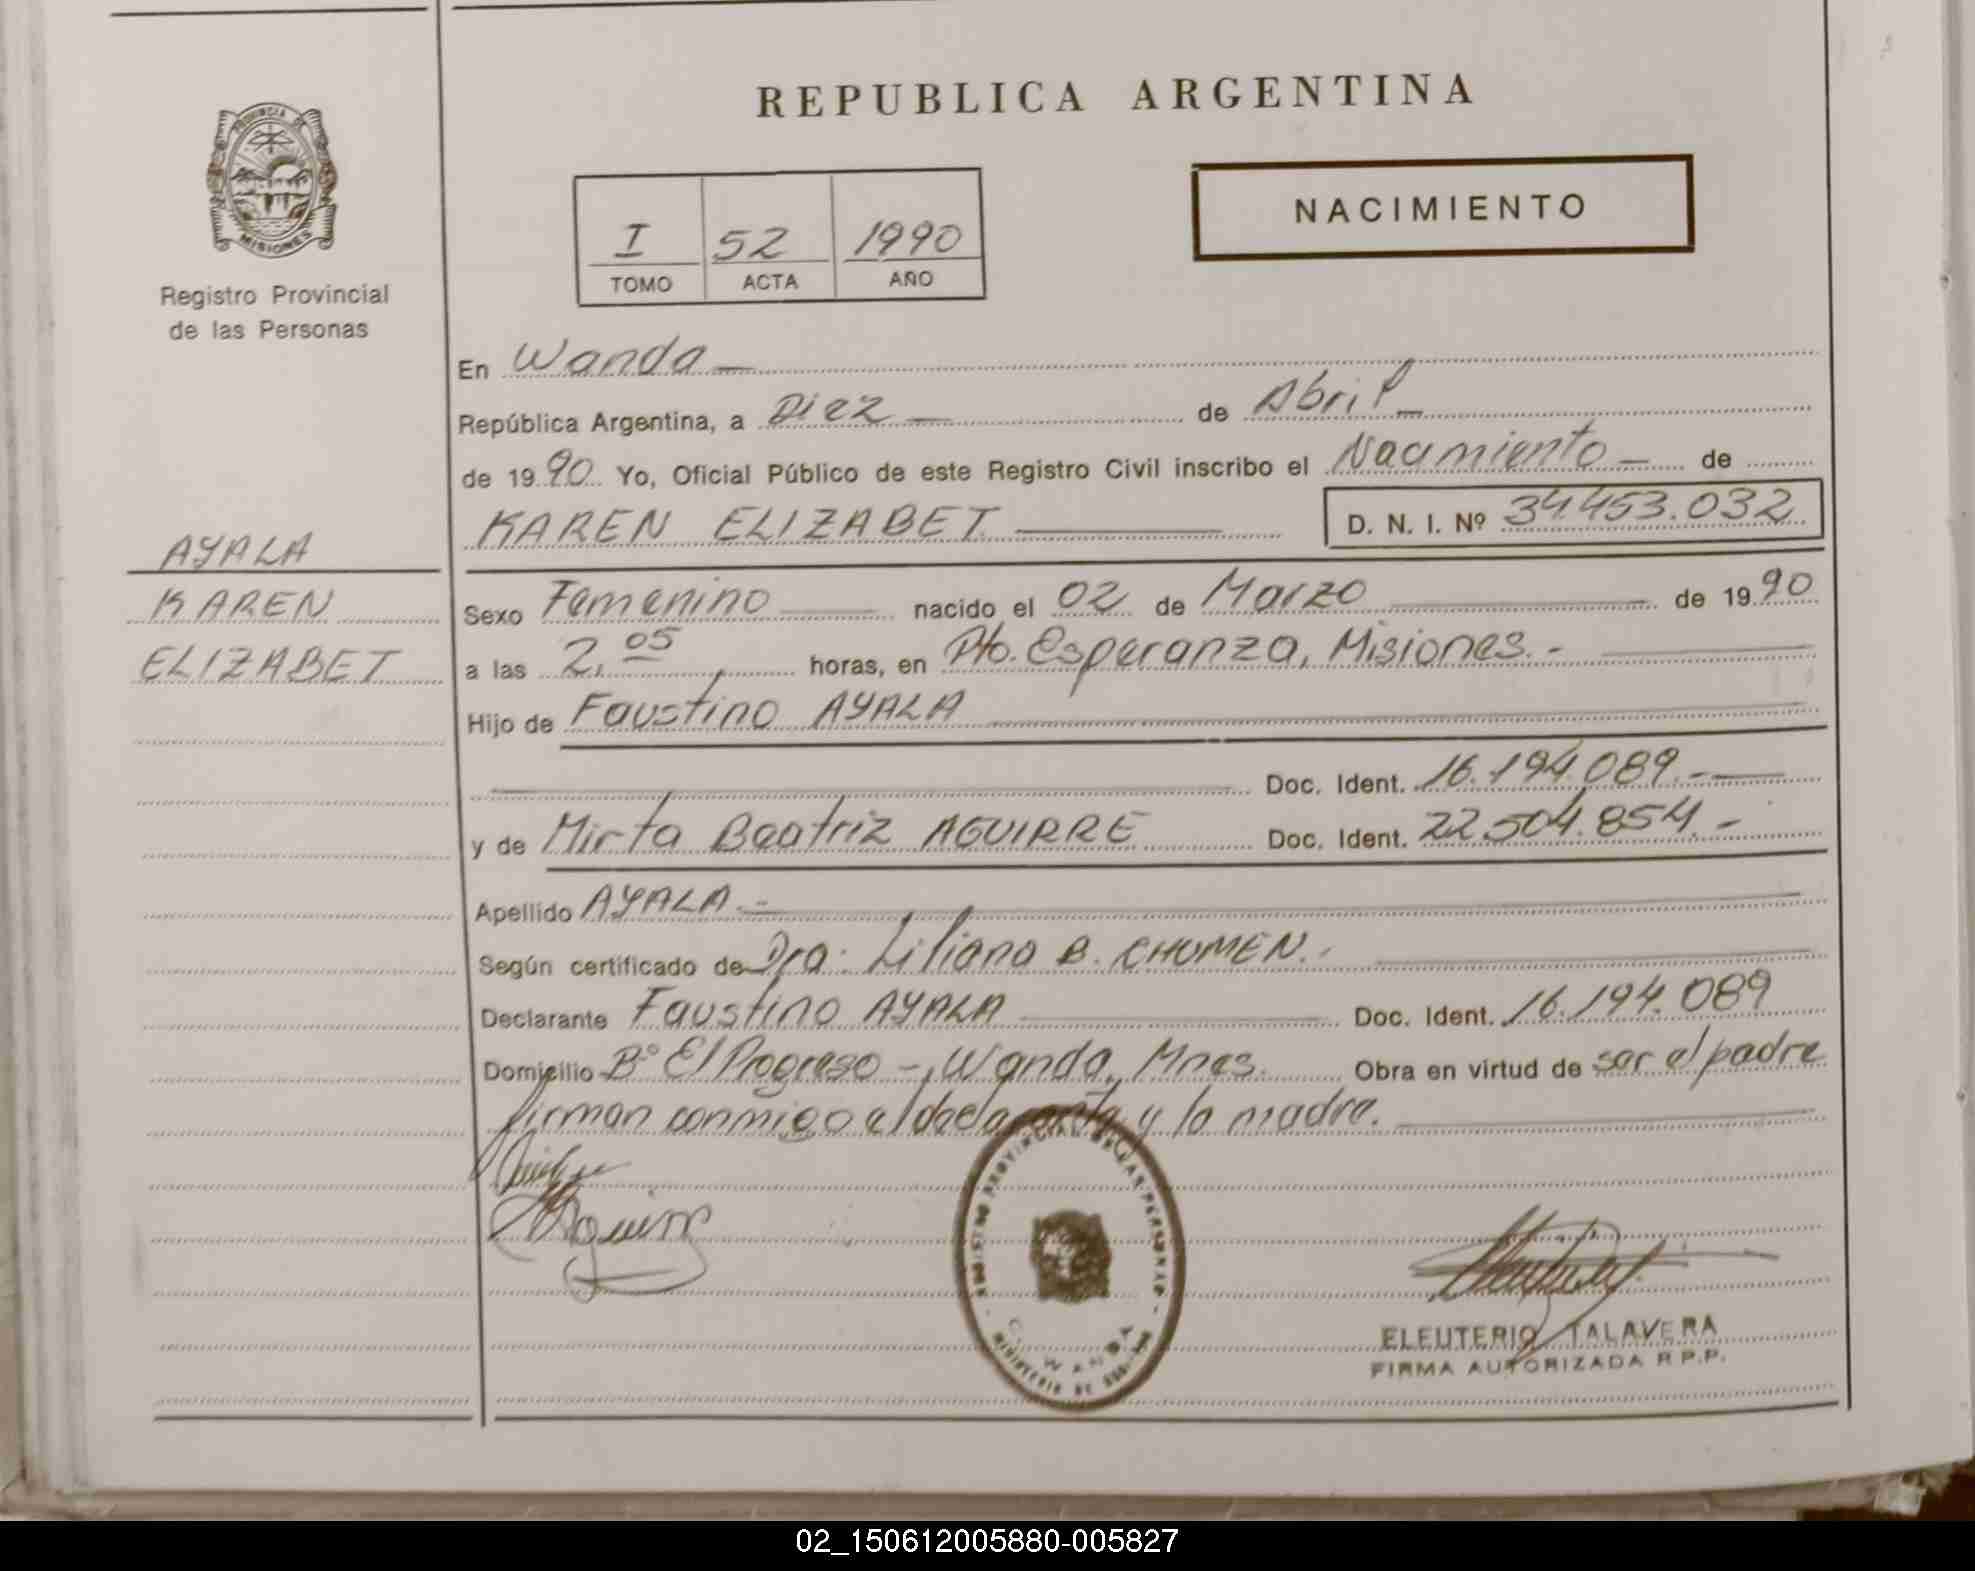 REPUBLICA ARGENTINA
PROVINCIA DE
MISIONES
Registro Provincial
de las Personas
NACIMIENTO
I 52 1990
TOMO ACTA AÑO
En Wanda
República Argentina, a Diez de Abril
de 1990 Yo, Oficial Público de este Registro Civil inscribo el Nacimiento de
KAREN ELIZABET D. N. I. Nº 34.453.032
AYALA
KAREN
ELIZABET
Sexo Femenino nacido el 02 de Marzo de 1990
a las 2,05 horas, en Pto. Esperanza, Misiones.-
Hijo de Faustino AYALA
Doc. Ident. 16.194.089.-
y de Mirta Beatriz AGUIRRE Doc. Ident. 22.504.854.-
Apellido AYALA.-
Según certificado de Dra. Liliana B. CHOMEN.
Declarante Faustino AYALA Doc. Ident. 16.194.089
Domicilio Bº El Progreso -, Wanda, Mnes. Obra en virtud de ser el padre
firman conmigo el declarante y la madre.
REGISTRO PROVINCIAL DE LAS PERSONAS
WANDA
ELEUTERIO TALAVERA
FIRMA AUTORIZADA R.P.P.
02_150612005880-005827